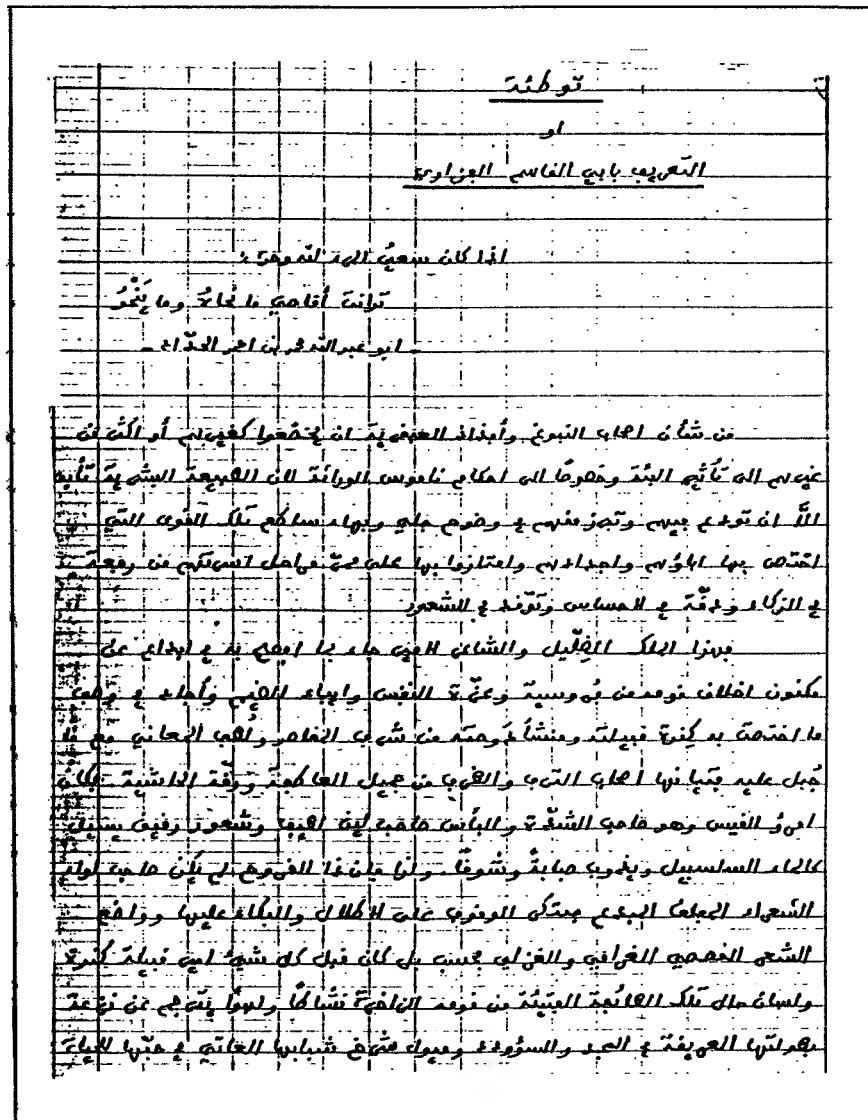 توطئة
او
التعريف بابي القاسم الفزاوي
اذا كان سعي المرء لله وحده
تدانت أقاصي ما نحاه وما يَنْحُو
- ابو عبد الله محمد بن احمد الحدّاد -
من شأن اصحاب النبوغ وأفذاذ العبقرية ان يخضعوا كغيرهم أو اكثر من
غيرهم الى تأثير البئة وخصوصًا الى احكام ناموس الوراثة لان الطبيعة البشرية تأبى
الاّ ان تودع فيهم وتبرز منهم في وضوح جلي وبهاء ساطع تلك القوى التي
اختص بها اباؤهم واجدادهم وامتازوا بها على مرّ مراحل
في الذكاء ودقّة في الاحساس وتوقد في الشعور
فهذا الملك الضِّلّيل والشاعر الامير جاء بما اوصي به في ابداع عن
مكنون اخلاق قومه من فروسية وعزّة النفس واباء الضيم وأجاد في وصف
ما اختصت به كِندة قبيلته ومنشأ دوحته من شرف العناصر و المعاني مع ما
جُبل عليه فتيانها اصحاب الترف والظرف من جميل العاطفة ورقّة الحاشية. فكان
امرؤ القيس وهو صاحب الشدّة والبأس صاحب لين لطيف وشعور رقيق يسيل
كالماء السلسبيل ويذوب صبابةً وشوقًا. ولذا فإن ذا القروح لم يكن صاحب لواء
الشعراء المبدع مبتكر الوقوف على الاطلال والبكاء عليها وواضع
الشعر القصصي الغرامي والغزلي فحسب بل كان قبل كل شيئ امير قبيلة كندة
ولسان حال تلك الطائفة الفتيّة من قومه الزاخرة نشاطًا ولهوًا يترجم عن نزعة
بطولتها العريقة في المجد والسؤودد وميول شرخ شبابها العاتي في حبّها للحياة